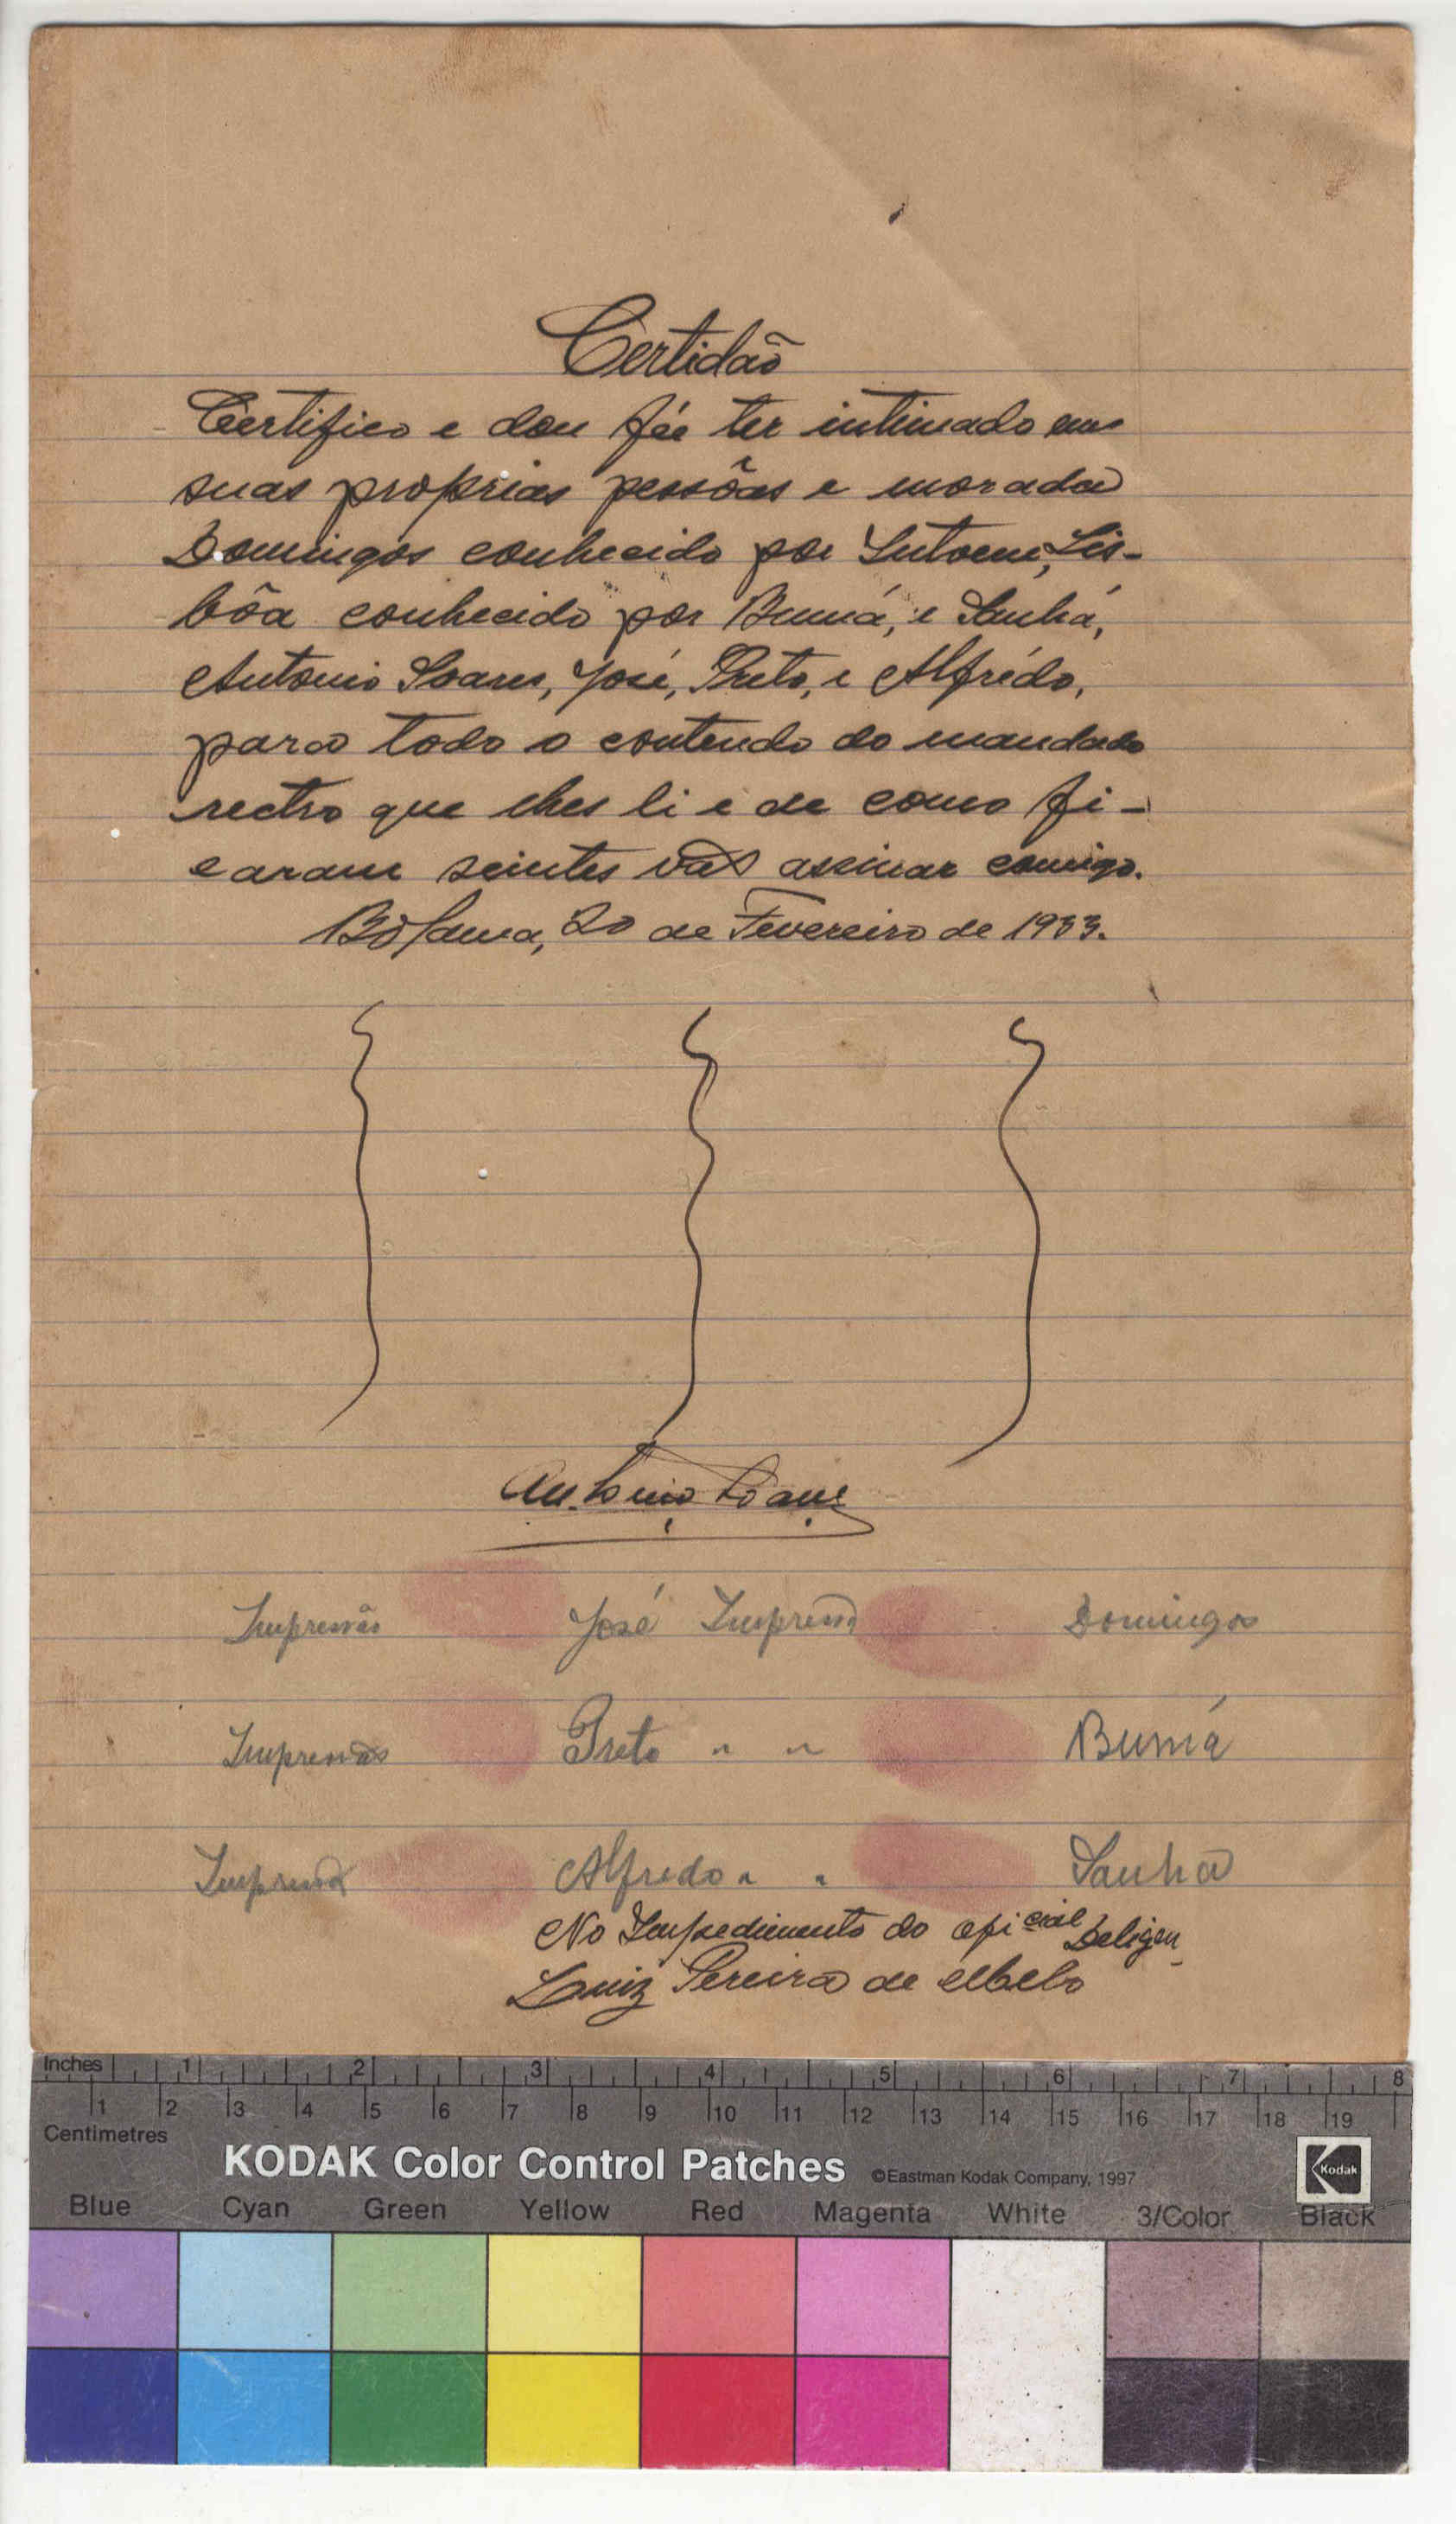 Certidão
Certifico e dou fée ter intimado em
suas proprias pessôas e morada
Domingos conhecido por Lis-
bôa conhecido por Bumá, e Sanhá,
Antonio Soares, José, Preto, e Alfrédo,
para todo o contendo do mandado
rectro que lhes li e de como fi-
caram scintes vão assinar comigo.
Bolama, 20 de Fevereiro de 1933.
Antonio Soares
Impressão José Impressão Domingos
Impressão Preto " " Bumá
Impressão Alfredo " " Sanha
No Impedimento do oficial Deligen_
Luiz Pereira de Melo
Inches 1 2 3 4 5 6 7 8
1 2 3 4 5 6 7 8 9 10 11 12 13 14 15 16 17 18 19
Centimetres
KODAK Color Control Patches ©Eastman Kodak Company, 1997 Kodak
Blue Cyan Green Yellow Red Magenta White 3/Color Black